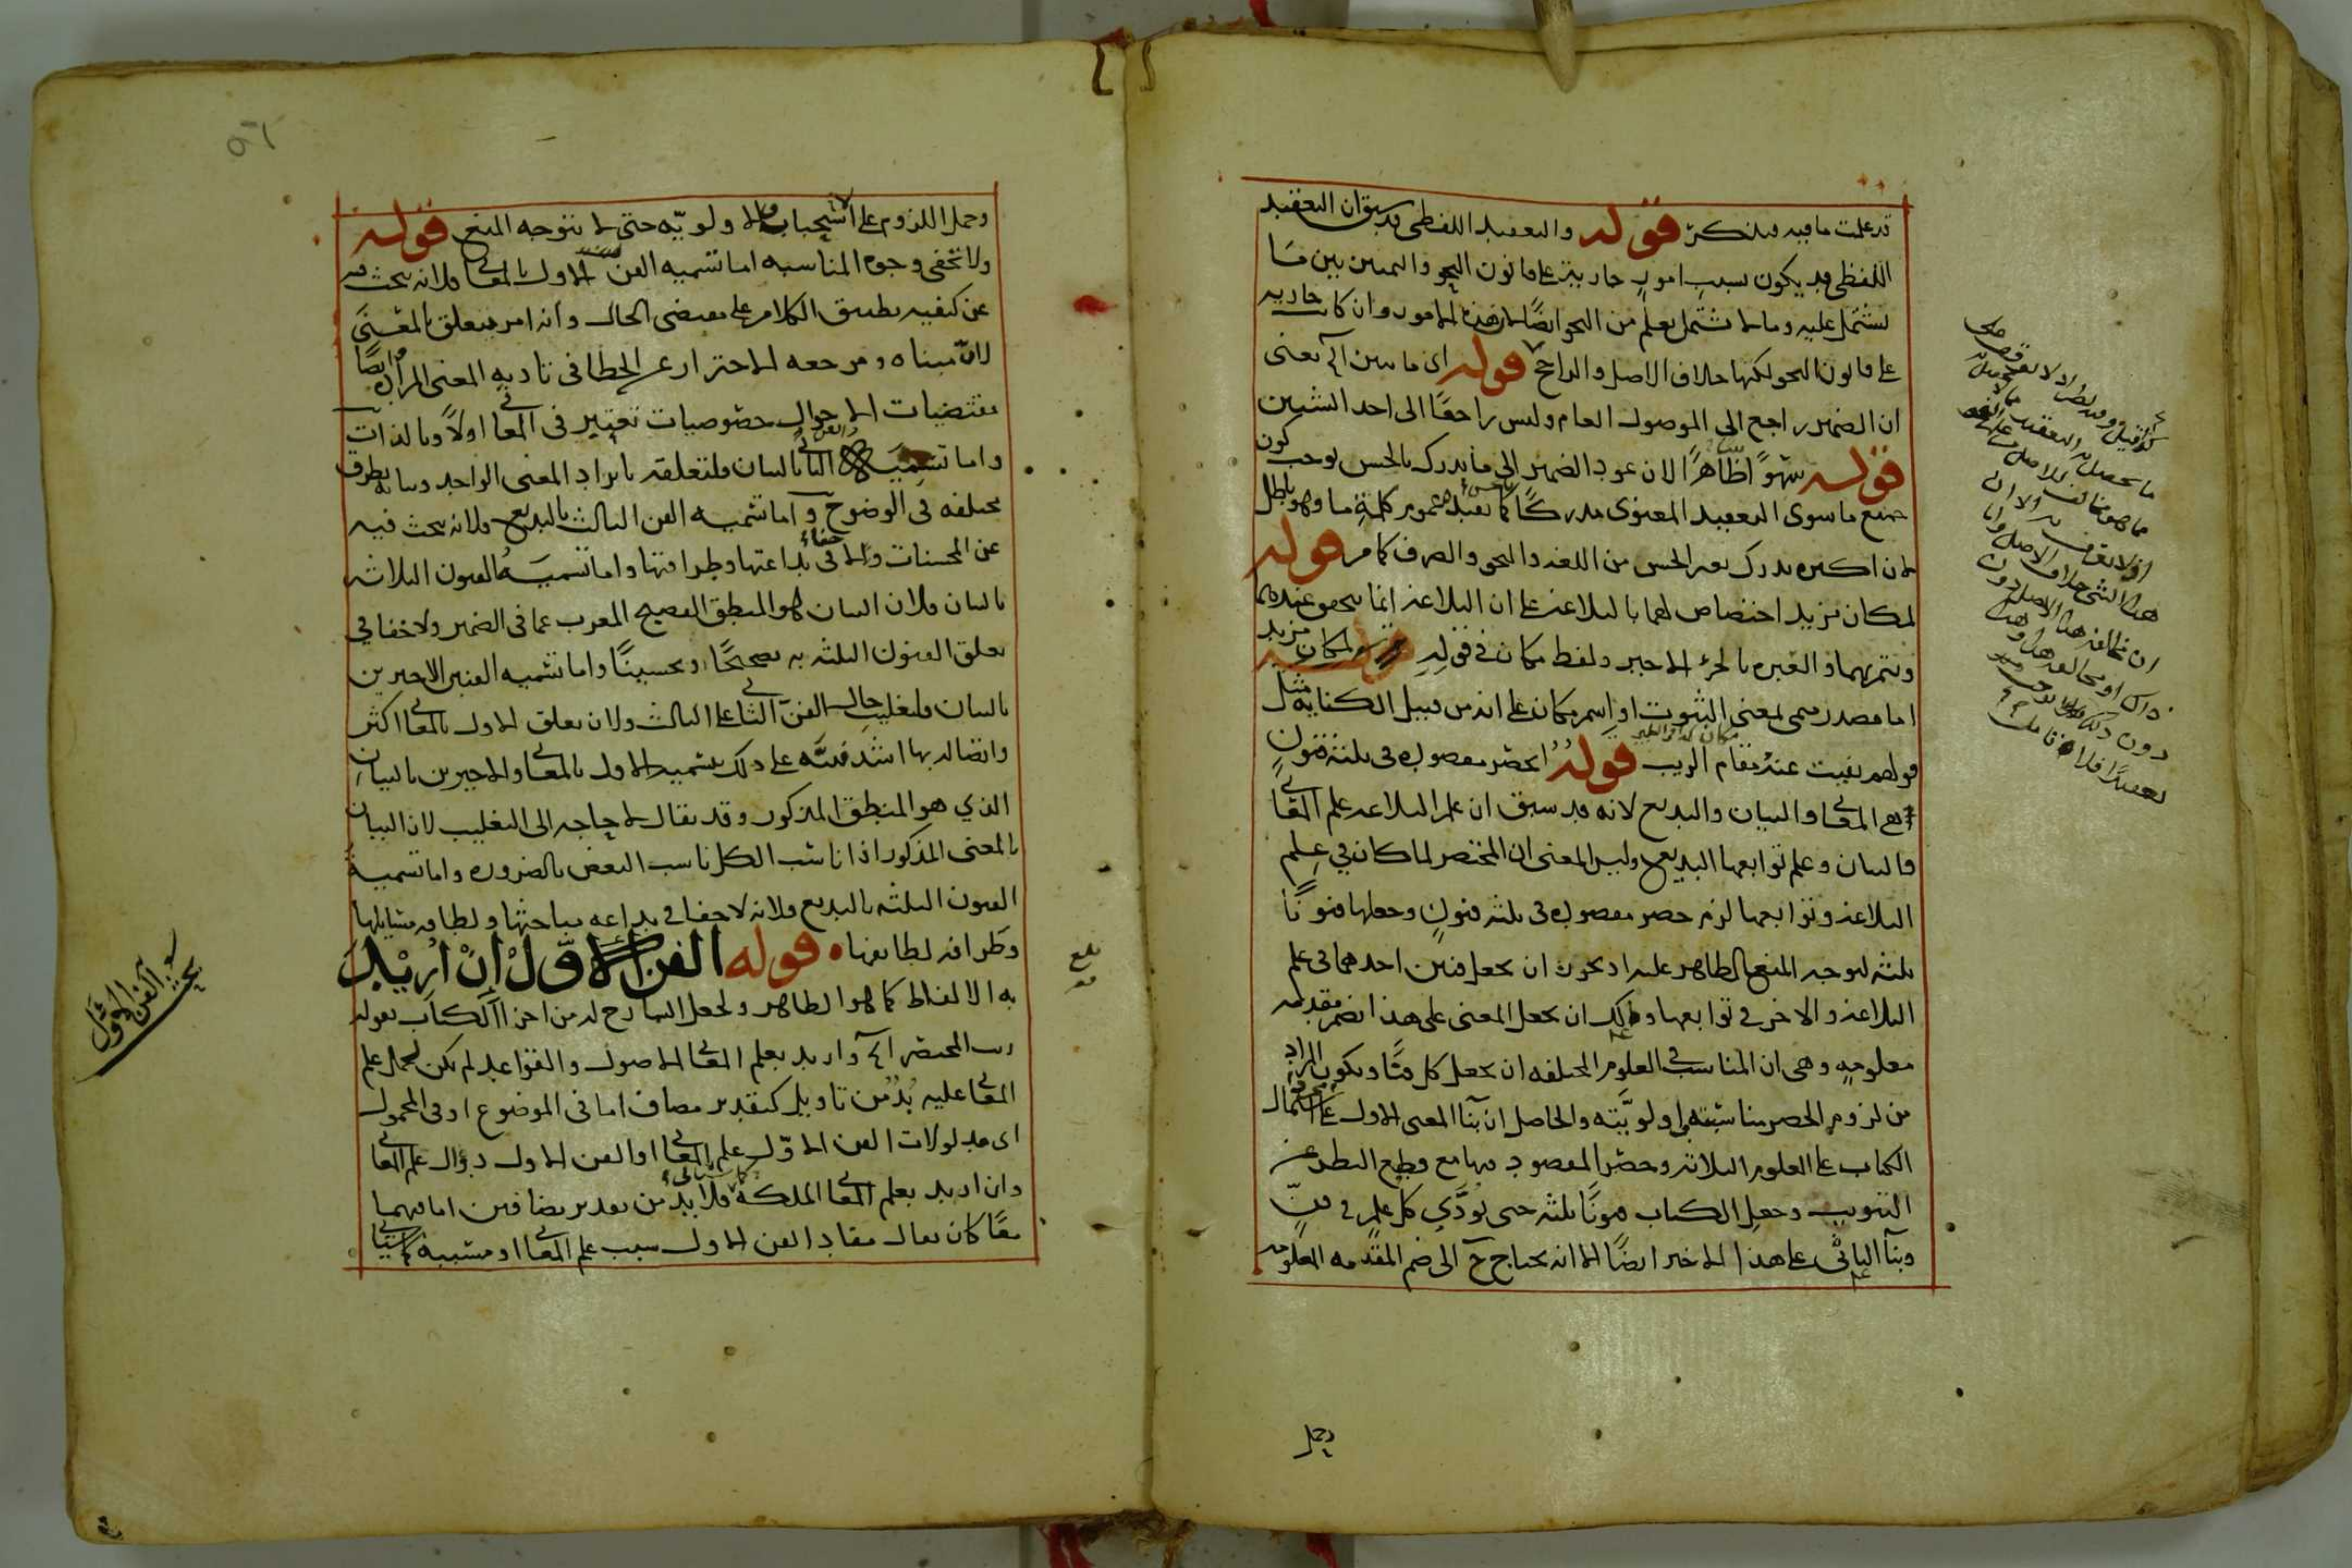 قد علمت ما فيه فتذكر قوله والتعقيد اللفظي قد سبق ان التعقيد
اللفظي قد يكون بسبب امور جارية على قانون النحو والتمييز بين ما
يشتمل عليه وما لا يشتمل يعلم من النحو ايضا لان هذه الامور وان كانت جارية
على قانون النحو لكنها خلاف الاصل والراجح قوله اى ما يبين آه يعنى
ان الضمير راجع الى الموصول العام وليس راجعا الى احد الشيئين
قوله سهوا ظاهرا لان عود الضمير الى ما يدرك بالحس يوجب كون
جميع ما سوى التعقيد المعنوى مدركا بالحس كما يفيده عموم كلمة ما وهو باطل
لان اكثره يدرك بغير الحس من اللغة والنحو والصرف كما مر قوله
لمكان مزيد اختصاص لهما بالبلاغة على ان البلاغة انما يتحقق عندهما
ويتم بهما والعبرة بالجزء الاخير ولفظ مكان في قوله لمكان مزيد
اما مصدر ميمى بمعنى الثبوت او اسم مكان على انه من قبيل الكناية مثل
قولهم نفيت عنه مقام الريب قوله انحصر مقصوده فى ثلثة فنون
هي المعانى والبيان والبديع لانه قد سبق ان علم البلاغة علم المعانى
والبيان وعلم توابعها البديع وليس المعنى ان المختصر لما كان في علم
البلاغة وتوابعها لزم حصر مقصوده فى ثلثة فنون وجعلها فنونا
ثلثة ليوجه المنع الظاهر عليه اذ يجوز ان يجعل فنين احدهما فى علم
البلاغة والاخر في توابعها ولك ان تجعل المعنى على هذا بضم مقدمة
معلومة وهى ان المناسب في العلوم المختلفة ان يجعل كل فنا ويكون المراد
من لزوم الحصر مناسبته واولويته والحاصل ان بنا المعنى الاول على اشتمال
الكتاب على العلوم الثلاثة وحصر المقصود فيها مع قطع النظر عن
التبويب وجعل الكتاب فنونا ثلثة حتى يؤدى كل علم في فن
وبنآ الثانى على هذا الاخير ايضا الا انه يحتاج ح الى ضم المقدمة المعلومة
وحمل
وحمل اللزوم على الاستحباب والاولوية حتى لا يتوجه المنع قوله
ولا تخفى وجوه المناسبة اما تسمية الفن الاول بالمعانى فلانه يبحث فيه
عن كيفية تطبيق الكلام على مقتضى الحال وانه امر يتعلق بالمعنى
لان مبناه ومرجعه الاحتراز عن الخطا فى تادية المعنى المراد وايضا
مقتضيات الاحوال خصوصيات تعتبر فى المعانى اولا وبالذات
واما تسمية الفن الثانى بالبيان فلتعلقه بايراد المعنى الواحد وبيانه بطرق
مختلفة فى الوضوح واما تسمية الفن الثالث بالبديع فلانه يبحث فيه
عن المحسنات ولا خفاء فى بداعتها وظرافتها واما تسمية الفنون الثلاثة
بالبيان فلان البيان هو المنطق الفصيح المعرب عما فى الضمير ولا خفا في
تعلق الفنون الثلثة به تصحيحا وتحسينا واما تسمية الفنين الاخيرين
بالبيان فلتغليب حال الفن الثانى على الثالث ولان تعلق الاول بالمعانى اكثر
واتصاله بها اشد فنبه على ذلك بتسمية الاول بالمعانى والاخيرين بالبيان
الذي هو المنطق المذكور وقد يقال لا حاجة الى التغليب لان البيان
بالمعنى المذكور اذا ناسب الكل ناسب البعض بالضرورة واما تسمية
الفنون الثلثة بالبديع فلانه لا خفا في بداعة مباحثها ولطافة مسايلها
وظرافة لطايفها قوله الفن الاول ان اريد
به الالفاظ كما هو الظاهر ولجعل الشارح له من اجزاء الكتاب بقوله
رتب المختصر آه واريد بعلم المعانى الاصول والقواعد لم يكن لحمل علم
المعانى عليه بد من تاويل كتقدير مضاف اما فى الموضوع او فى المحمول
اى مدلولات الفن الاول علم المعانى او الفن الاول دوال علم المعانى
وان اريد بعلم المعانى الملكة فلا بد من تقدير مضافين اما فيهما
معا كان يقال مفاد الفن الاول سبب علم المعانى او مسببه
بلغ
بحث الفن الاول